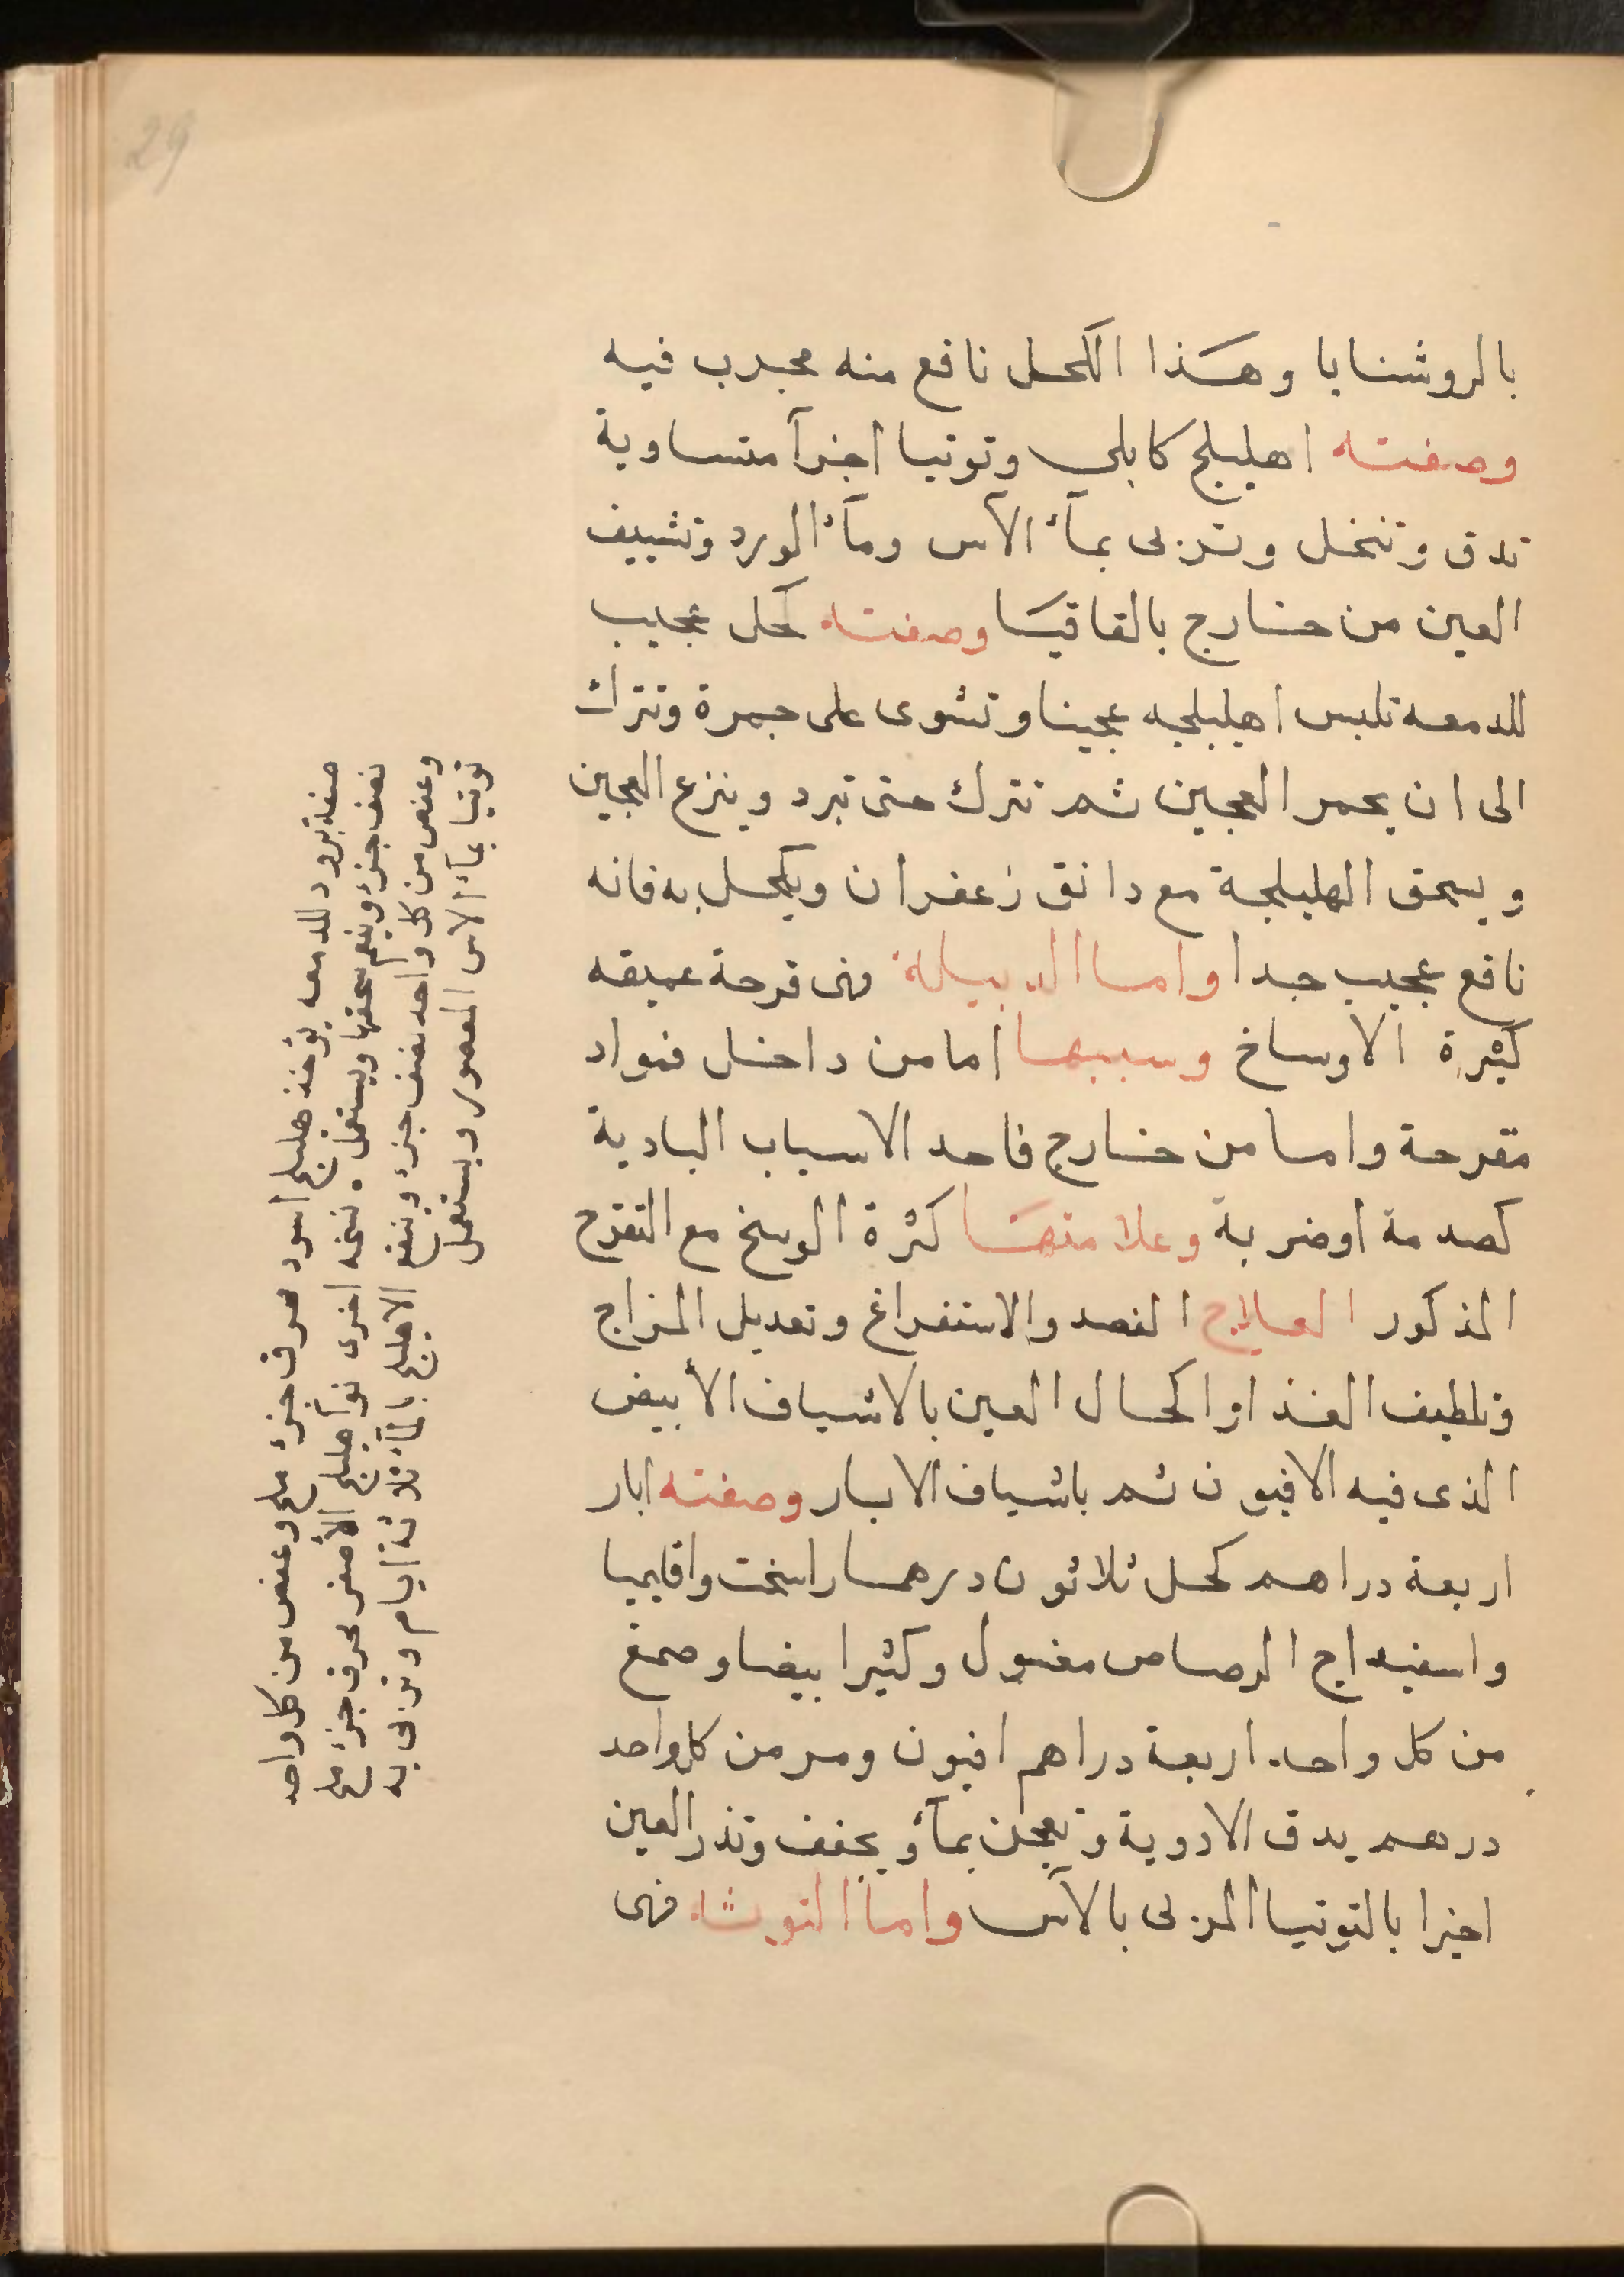 29
بالروشنايا وهذا الكحل نافع منه مجرب فيه
وصفته اهليلج كابلي وتوتيا اجزآ متساوية
تدق وتنخل وتربى بمآء الآس ومآء الورد وتشييف
العين من خارج بالقاقيا وصفته كحل عجيب
للدمعه تلبس اهليلجه عجينا وتشوى على جمرة وتترك
الى ان يحمر العجين ثم تترك حتى تبرد وينزع العجين
ويسحق الهليلجة مع دانق زعفران ويكحل به فانه
نافع عجيب جدا واما الدبيلة فهى قرحة عميقه
كثيرة الاوساخ وسببها اما من داخل فمواد
مقرحة واما من خارج فاحد الاسباب البادية
كصدمة او ضربة وعلامتها كثرة الوسخ مع التقرح
المذكور العلاج الفصد والاستفراغ وتعديل المزاج
وتلطيف الغذا واكحال العين بالاشياف الأبيض
الذى فيه الافيون ثم باشياف الابار وصفته ابار
اربعة دراهم كحل ثلاثون درهما راسخت واقليميا
واسفيداج الرصاص مغسول وكثيرا بيضا وصمغ
من كل واحد اربعة دراهم افيون ومر من كل واحد
درهم يدق الادوية وتعجن بمآء ويجفف وتذر العين
اخيرا بالتوتيا المربى بالآس واما التوثه فهى
صفة برود للدمعه يؤخذ هليلج اسود محرف جزء ملح وعفص من كل واحد
نصف جزء وينعم سحقها ويستعمل . نسخه اخرى نوآ هليلج الأصفر محرق جزء ملح
وعفص من كل واحد نصف جزء وينقع الاهليلج بالمآء ثلاثة ايام وتربى به
توتيا بمآء الاس المعصور ويستعمل